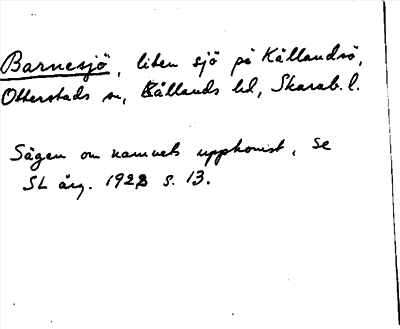 Barnesjö, liten sjö på Kållandsö,
Otterstads sn, Kållands hd, Skarab. l.
Sägen om namnets uppkomst, se
SL årg. 1928 s. 13.